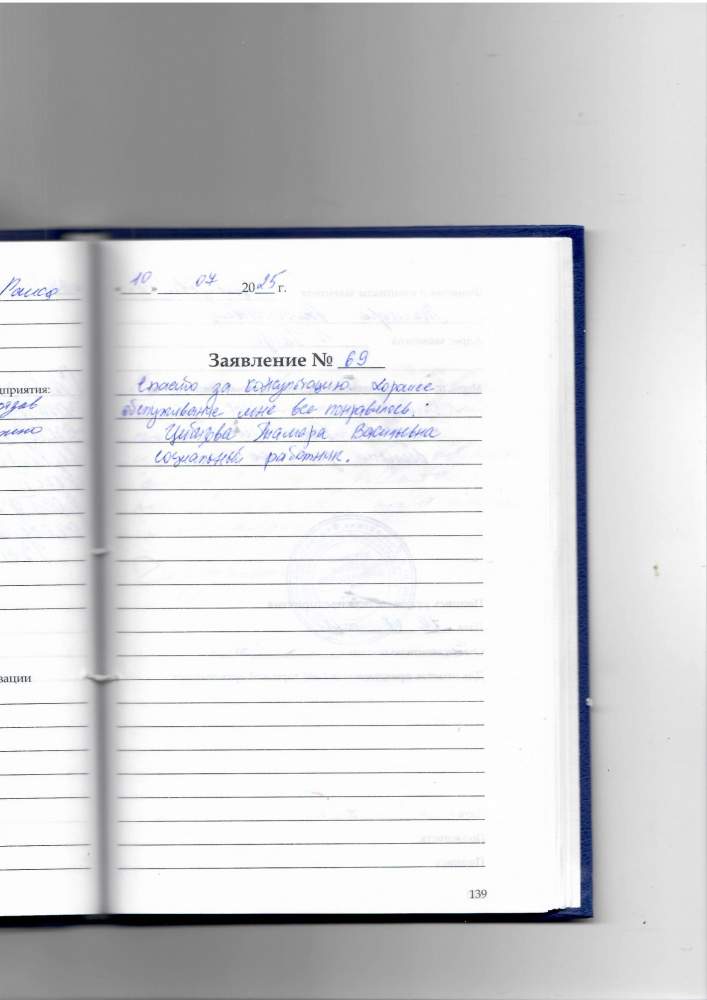 Раиса
дприятия:
вации
«10» 07 2025 г.
Заявление № 69
Спасибо за консультацию. Хорошее
обслуживание мне все понравилось.
Тамара Васильевна
социальный работник.
139